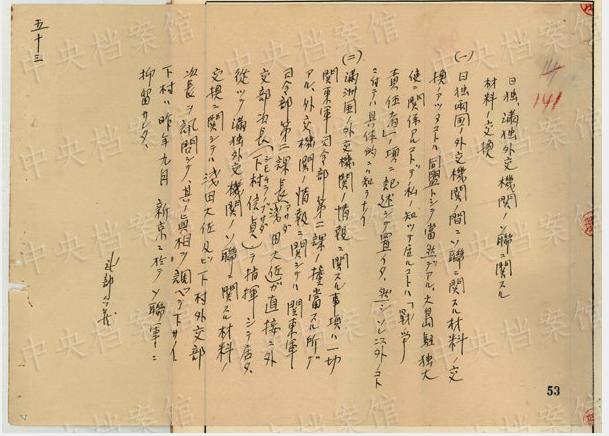 日独、満独外交機関ノソ聯ニ関スル
材料ノ交換
(一) 日独両国ノ外交機関ノ間ニソ聯ニ関スル材料ノ交
換ノアツタコトハ同盟トシテ当然デアル、大島駐独大
使ニ関係アルコトデ私ノ知ツテ居ルコトハ「戦争
責任者」ノ項ニ記述シテ置イタ、然シソレ以外ノコト
ニ付テハ具体的ニ知ラナイ
(二) 満洲国ノ外交機関ノ情報ニ関スル事項ハ一切
関東軍司令部第二課ノ擔當スル所デ
アル、外交機関ノ情報ニ関シテハ関東軍
司令部第二課長(浅田大佐)ガ直接ニ外
交部次長(下村信貞)ヲ指揮シテ居タ、
従ツテ満独外交機関ノソ聯ニ関スル材料ノ
交換ニ関シテハ浅田大佐及ビ下村外交部
次長ヲ訊問シテ其ノ真相ヲ調ベテ下サイ
下村ハ昨年九月新京ニ於テソ聯軍ニ
抑留サレタ、
武部六蔵
五十三
141
53
中央档案馆